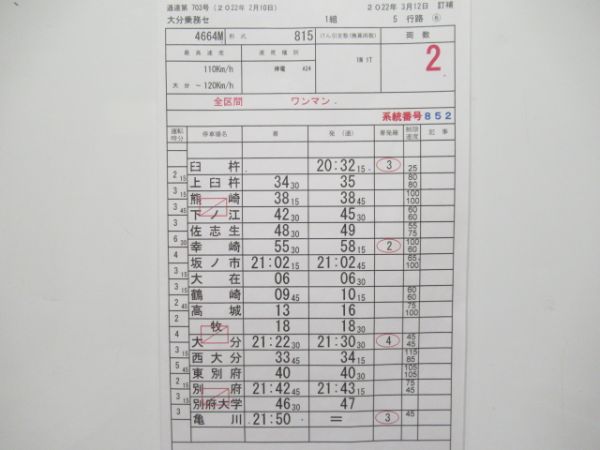 達達第 703号(2022年 2月10日) 2022年 3月12日 訂補
大分乗務セ 1組 5 行路 ⑥
4664M 形式 815 けん引定数(換算両数) 両数
最高速度 速度種別 2
110Km/h 停電 A24 1M 1T
大分 ～120Km/h
全区間 ワンマン.
系統番号852
運転時分 停車場名 着 発(通) 着発線 制限速度 記事
臼杵 20:32 15 ③ 25
2 15 上臼杵 34 30 35 80 80
3 15 熊崎 38 15 38 45 100 100
3 45 下ノ江 42 30 45 30 60 60
3 佐志生 48 30 49 55 75
6 30 幸崎 55 30 58 15 ② 100 60
3 坂ノ市 21:02 15 21:02 45 65 100
3 15 大在 06 06 30
3 15 鶴崎 09 45 10 15 60 60
2 45 高城 13 16 75 100
2 牧 18 18 30
4 大分 21:22 30 21:30 30 ④ 45 45
3 15 西大分 33 45 34 15 115 85
5 45 東別府 40 40 30 105 105
2 15 別府 21:42 45 21:43 15 75 45
3 15 別府大学 46 30 47
3 亀川 21:50 . = ③ 45